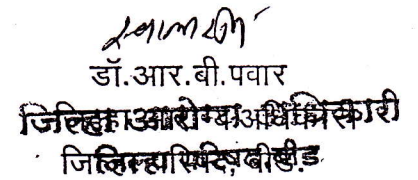 डॉ.आर.बी.पवार
जिल्हा आरोग्य अधिकारी
जिल्हा परिषद, बीड.